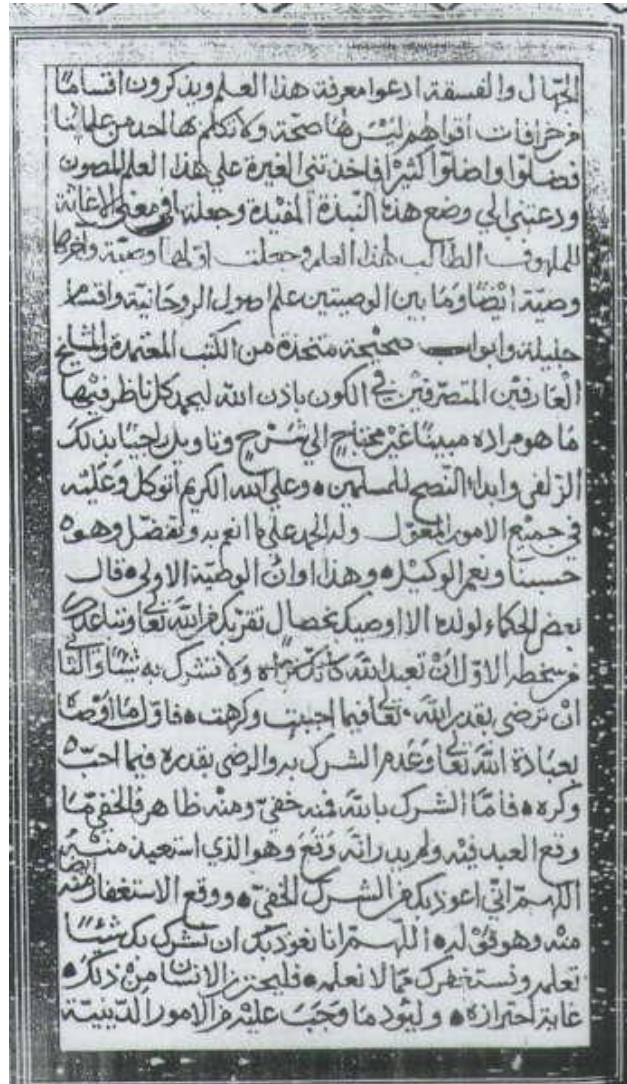 الجهال والفسقة ادعوا معرفة هذا العلم ويذكرون اقسامًا
من خرافات أقوالهم ليس لها صحة ولا تكلم بها احد من علمائنا
فضلوا واضلوا كثيرًا فاخذتني الغيرة علي هذا العلم المصون
ودعتني الي وضع هذه النبذة المفيدة وجعلتها في معني الاغاثة
للملهوف الطالب لهذا العلم وجعلت اولها وصية واخرها
وصية ايضًا وما بين الوصيتين علم اصول الروحانية واقسام
جليلة وابواب صحيحة متخذة من الكتب المعتمدة والمشايخ
العارفين المتصرفين في الكون باذن الله ليجد كل ناظر فيها
ما هو مراده مبينًا غير محتاج الي شرح وتاويل راجيًا بذلك
الزلفي وابداء النصح للمسلمين وعلي الله الكريم اتوكل وعليه
في جميع الامور المعول وله الحمد علي ما انعم به وتفضل وهو
حسبنا ونعم الوكيل وهذا اوان الوصية الاولي قال
بعض الحكماء لولده الا اوصيك بخصال تقربك من الله تعا وتباعدك
من سخطه الاول ان تعبد الله كانك تراه ولا تشرك به شيئا والثاني
ان ترضي بقدر الله تعا فيما احببت وكرهت فاول ما اوصاه
بعبادة الله تعا وعدم الشرك به والرضي بقدره فيما احبه
وكره فاما الشرك بالله فمنه خفي ومنه ظاهر فالخفي ما
وقع العبد فيه ولم يدر انه وقع وهو الذي استعيذ منه
اللهم اني اعوذ بك من الشرك الخفي ووقع الاستغفار منه ايضا
منه وهو قوله اللهم انا نعوذ بك ان نشرك بك شيئا
نعلمه ونستغفرك مما لا نعلمه فليحترز الانسان من ذلك
غاية احترازه وليؤد ما وجب عليه من الامور الدينية